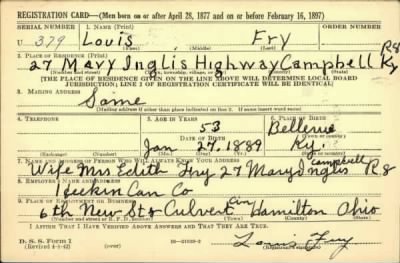 REGISTRATION CARD—(Men born on or after April 28, 1877 and on or before February 16, 1897)
SERIAL NUMBER 1. NAME (Print) ORDER NUMBER
U 379 Louis Fry
(First) (Middle) (Last)
2. PLACE OF RESIDENCE (Print) R8
27 Mary Inglis Highway Campbell Ky
(Number and street) (Town, township, village, or city) (County) (State)
[THE PLACE OF RESIDENCE GIVEN ON THE LINE ABOVE WILL DETERMINE LOCAL BOARD
JURISDICTION; LINE 2 OF REGISTRATION CERTIFICATE WILL BE IDENTICAL]
3. MAILING ADDRESS
Same
[Mailing address if other than place indicated on line 2. If same insert word same]
4. TELEPHONE 5. AGE IN YEARS 6. PLACE OF BIRTH
53 Bellevue
DATE OF BIRTH (Town or county)
Jan 27. 1889 Ky.
(Exchange) (Number) (Mo.) (Day) (Yr.) (State or country)
7. NAME AND ADDRESS OF PERSON WHO WILL ALWAYS KNOW YOUR ADDRESS Campbell
Wife Mrs Edith Fry 27 Mary Inglis R8
8. EMPLOYER'S NAME AND ADDRESS
Heekin Can Co
9. PLACE OF EMPLOYMENT OR BUSINESS
6th New Sts Culvert Cin Hamilton Ohio
(Number and street or R. F. D. number) (Town) (County) (State)
I AFFIRM THAT I HAVE VERIFIED ABOVE ANSWERS AND THAT THEY ARE TRUE.
D. S. S. Form 1
(Revised 4-1-42) (over) Louis Fry